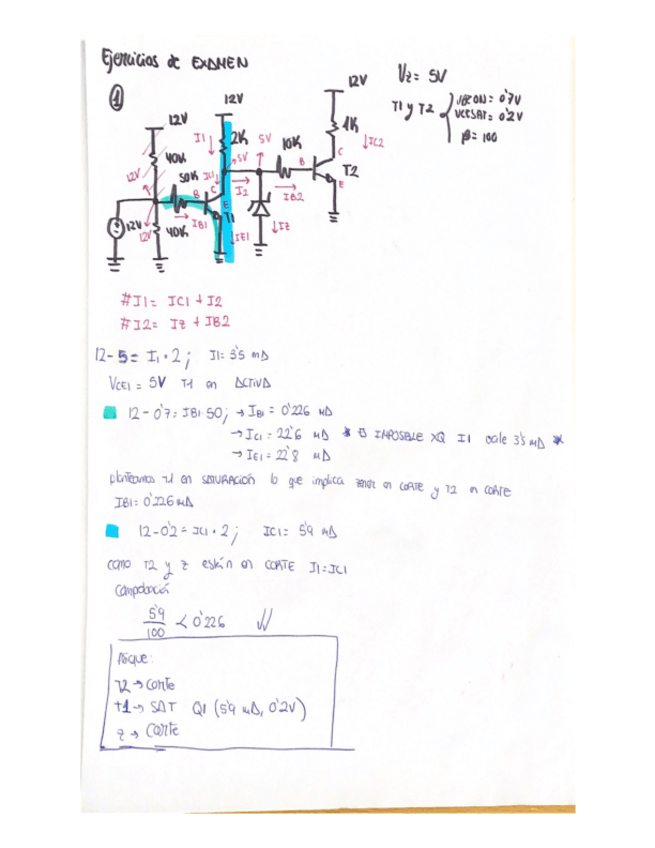 Ejercicios de EXAMEN
①
Vz = 5V
T1 y T2 { VBE ON = 0'7V
VCESAT = 0'2V
β = 100
12V
12V
12V
40K
I1↓
2K
5V
5V
10K
1K
↓IC2
12V
50K
IC1↓
B
C
E
T1
→I2
→IB2
B
C
E
T2
12V
12V
40K
→IB1
↓IE1
↓Iz
#I1 = IC1 + I2
#I2 = Iz + IB2
12 - 5 = I1 · 2 ; I1 = 3'5 mA
VCE1 = 5V T1 en ACTIVA
12 - 0'7 = IB1·50 ; → IB1 = 0'226 mA
→ IC1 = 22'6 mA * ES IMPOSIBLE XQ I1 vale 3'5 mA *
→ IE1 = 22'8 mA
planteamos T1 en SATURACIÓN lo que implica zener en CORTE y T2 en CORTE
IB1 = 0'226 mA
12 - 0'2 = IC1 · 2 ; IC1 = 5'9 mA
como T2 y z están en CORTE I1 = IC1
Comprobación
5'9
100 < 0'226 √√
Asique:
T2 → corte
t1 → SAT Q1 (5'9 mA, 0'2V)
z → corte